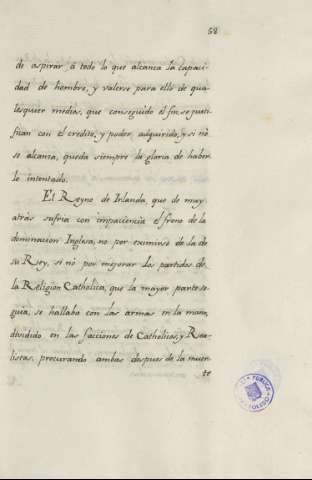 58
de aspirar á todo lo que alcanza la capaci
dad de hombre, y valerse para ello de qua
lesquier medios, que conseguido el fin se justi
fican con el credito, y poder adquirido, y si no
se alcanza, queda siempre de gloria de haber
lo intentado.
El Reyno de Irlanda, que de muy
atrás sufria con impaciencia el freno de la
dominacion Inglesa, no por eximirse de la de
su Rey, si no por mejorar los partidos de
la Religion Catholica, que la mayor parte se
guia, se hallaba con las armas en la mano,
dividido en las facciones de Catholicos, y Rea
listas, procurando ambas despues de la muer
te
PUBLICA
TOLEDO